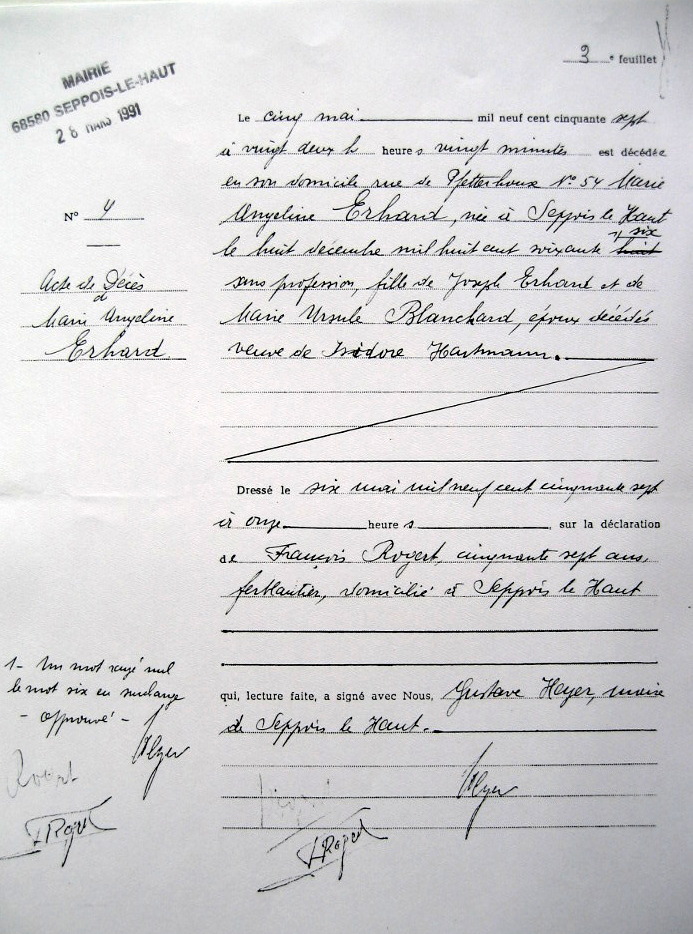 3e feuillet
MAIRIE
68580 SEPPOIS-LE-HAUT
26 MARS 1991
Le cinq mai mil neuf cent cinquante sept
à vingt deux h heures vingt minutes est décédée
en son domicile rue de Pfetterhoux N° 54 Marie
Angeline Erhard, née à Seppois le Haut
1 six
le huit décembre mil huit cent soixante huit
sans profession, fille de Joseph Erhard et de
Marie Ursule Blanchard, époux décédés
veuve de Isidore Hartmann.
N° 4
Acte de Décès
d
Marie Angeline
Erhard
Dressé le six mai mil neuf cent cinquante sept
à onze heures, sur la déclaration
de François Rogert, cinquante sept ans,
ferblantier, domicilié à Seppois le Haut
qui, lecture faite, a signé avec Nous, Gustave Heyer, maire
de Seppois le Haut.
1- Un mot rayé nul
le mot six en surcharge
- approuvé -
Heyer
Heyer